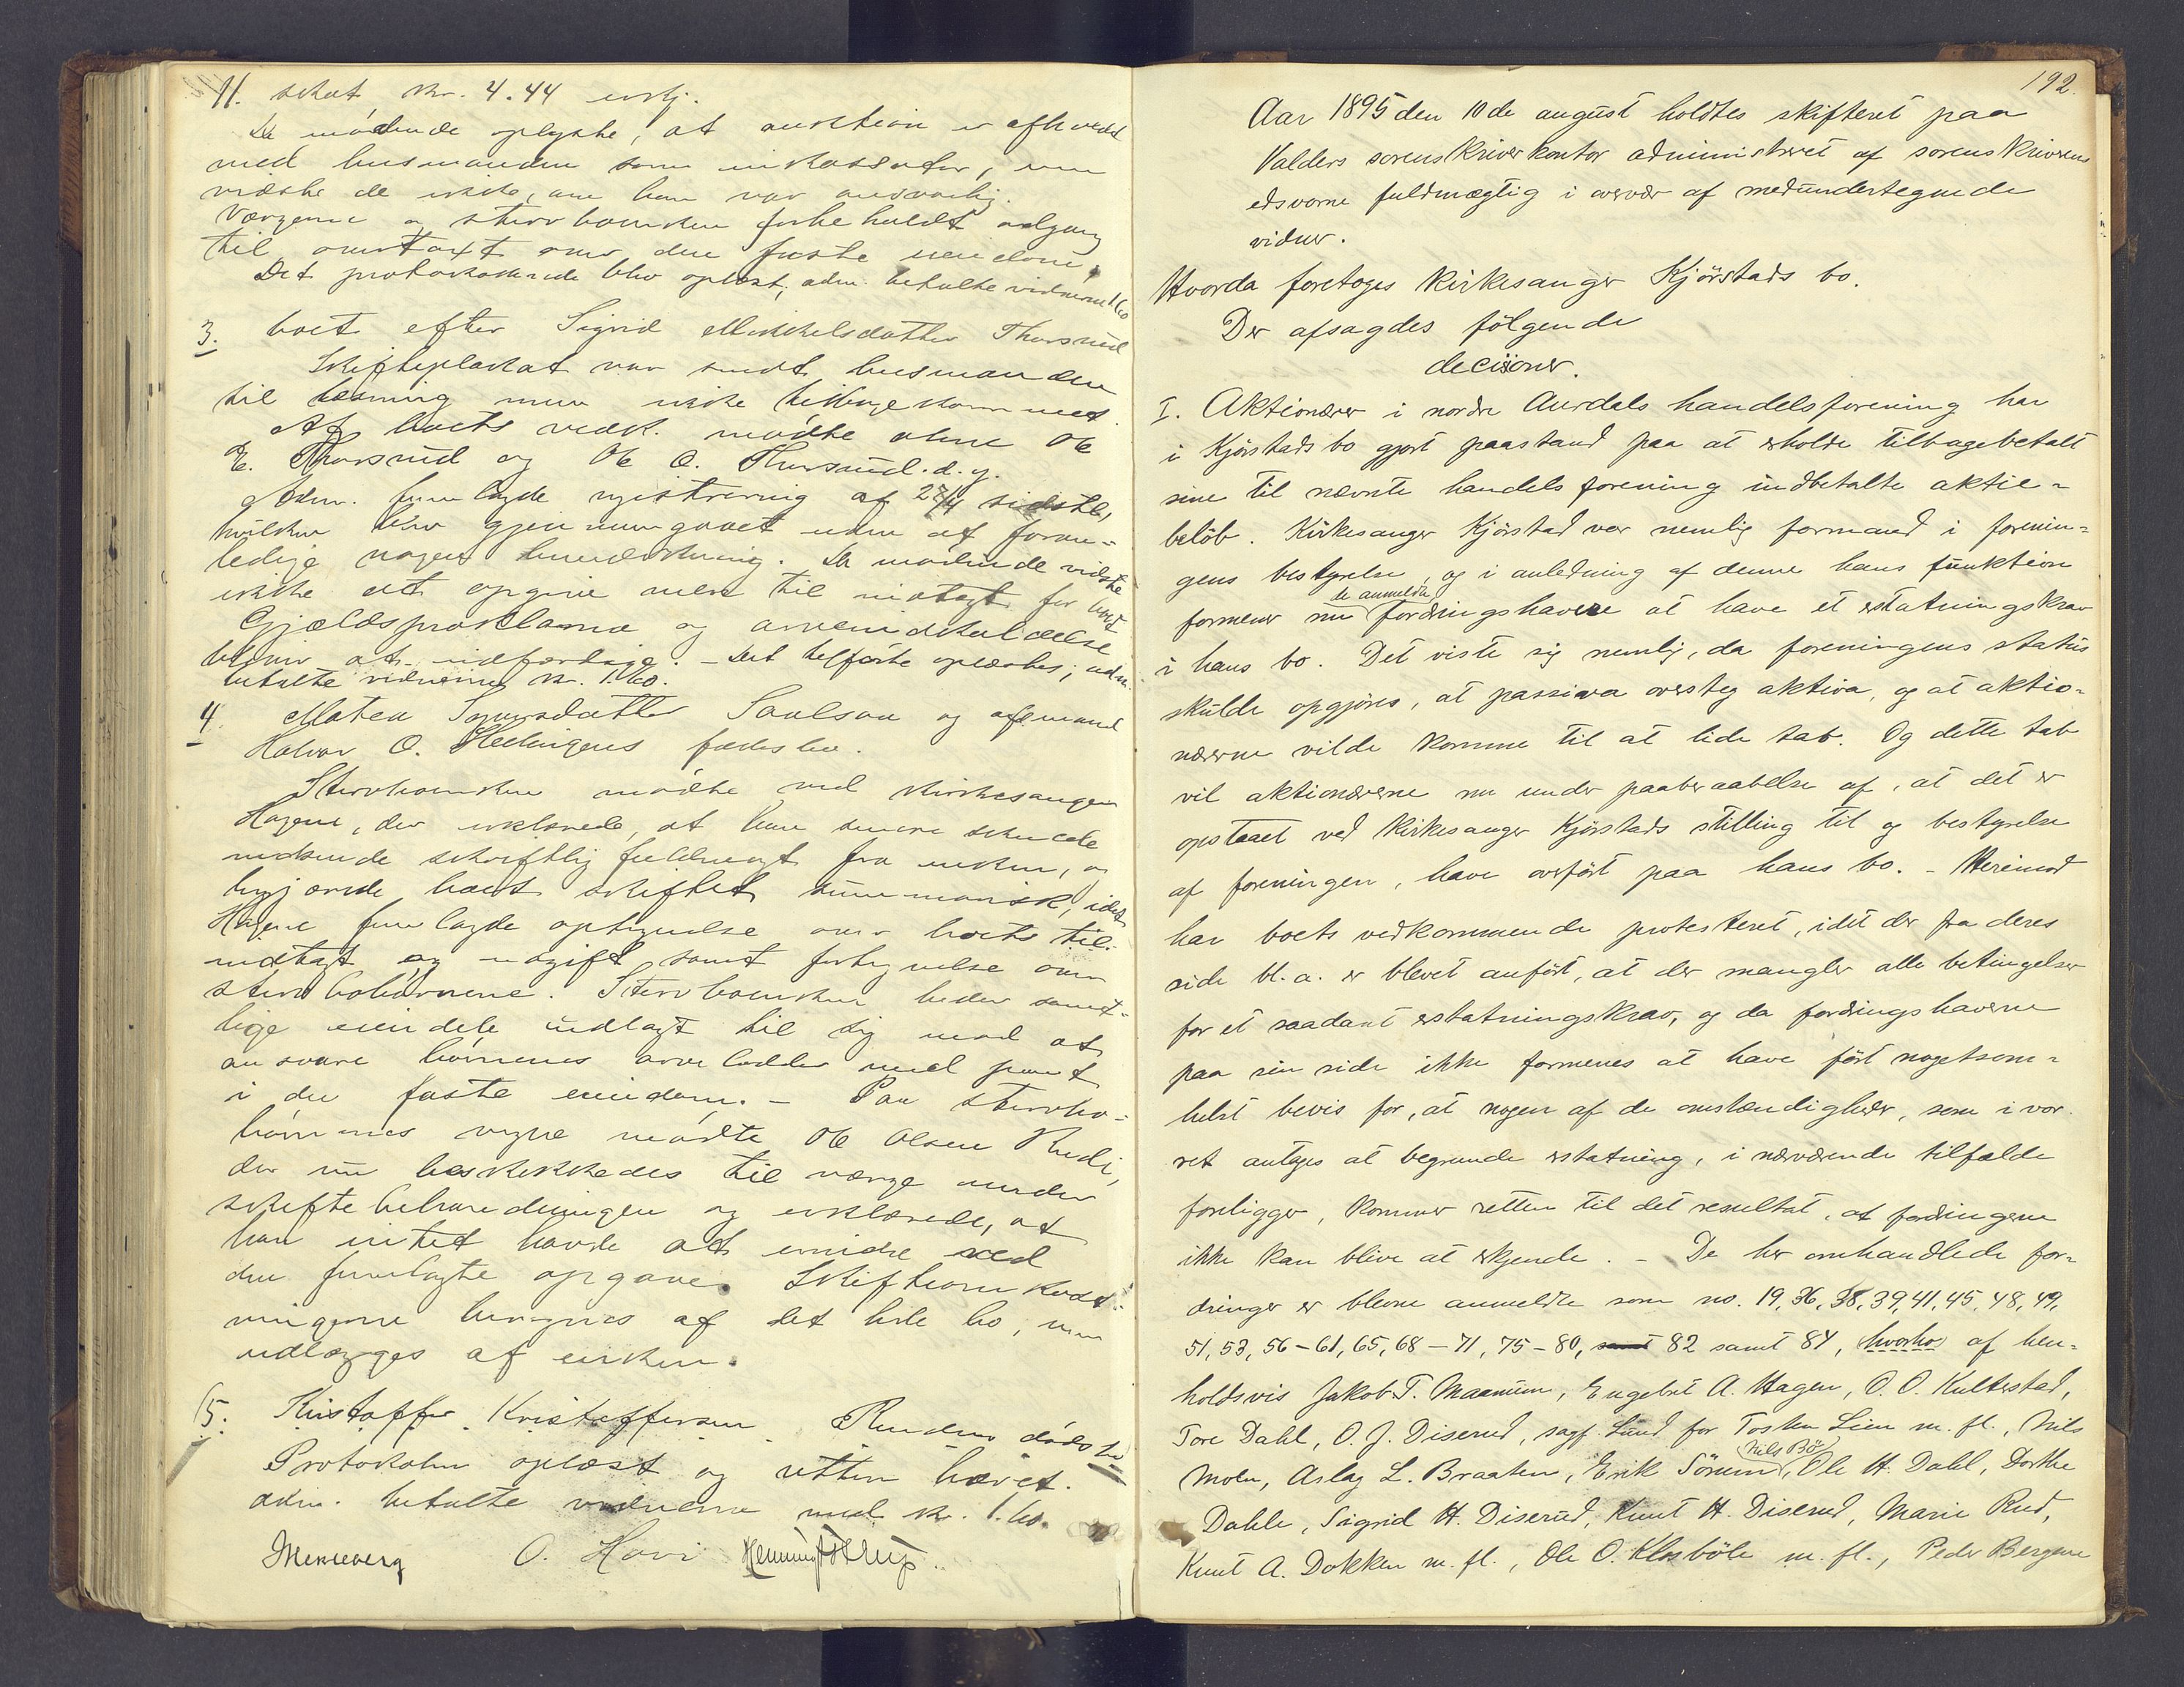 11. skat, kr. 4.44 erkj.
De mødende oplyste, at auktion er afholdt
med husmanden som inkassator, men
vidste de ikke, om han var ansvarlig.
Værgerne og stervboenken forbeholdt adgang
til omtaxt over den faste eiendom.
Det protokollerede blev oplæst; adm. betalte vidnerne 1.60
3. boet efter Sigrid Mikkelsdatter Thorsrud
Skifteplakat var sendt husmanden
til læsning men ikke tilbagekommet.
Af boets vedk. mødte alene Ole
E. Thorsrud og Ole O. Thorsrud d. y.
Adm. fremlagde registrering af 27/4 sidstl.,
hvilken blev gjennemgaaet uden at foran-
ledige nogen bemærkning. De mødende vidste
ikke at opgive mere til indtægt for boet
Gjældsproklama og arveindkaldelse
bliver at udfærdige. - Det tilførte oplæstes; adm.
betalte vidnerne kr. 1.60.
4. Maten Syversdatter Saulson og afg. mand
Halvor O. Hellingens fælesbo.
Stervboenken mødte ved kirkesanger
Hagene, der erklærede, at han senere skulde
indsende skriftlig fuldmagt fra enken, og
begjærede boet skiftet summarisk, idet
Hagene fremlagde optegnelse over boets til-
indtægt og udgift samt fortegnelse over
stervbobørnene. Stervboenken beder samt-
lige eiendele udlagt til sig mod at
ansvare børnenes arvelodder med pant
i den faste eiendom. - Paa stervbo-
børnenes vegne mødte Ole Olsen
der nu beskikkedes til værge under
skiftebehandlingen og erklærede, at
han intet havde at erindre ved
den fremlagte opgave. Skifteomkost-
ningerne beregnes af det hele bo, men
udlægges af enken.
5. Kristoffer Kristoffersen Rudens dødsbo
Protokollen oplæst og retten hævet.
Adm. betalte vidnerne med kr. 1.60.
O. Hovi
192.
Aar 1895 den 10de august holdtes skifteret paa
Valders sorenskriverkontor administreret af sorenskriverens
edsvorne fuldmægtig i overvær af medundertegnede
vidner.
Hvorda foretoges kirkesanger Kjörstads bo.
Der afsagdes fölgende
decisioner.
I. Aktionærer i nordre Aurdals handelsforening har
i Kjörstads bo gjort paastand paa at erholde tilbagebetalt
sine til nævnte handelsforening indbetalte aktie-
belöb. Kirkesanger Kjörstad var nemlig formand i forenin-
gens bestyrelse, og i anledning af denne hans funktion
de anmeldte
formener nu fordringshavere at have et erstatningskrav
i hans bo. Det viste sig nemlig, da foreningens status
skulde opgjöres, at passiva oversteg aktiva, og at aktio-
nærerne vilde komme til at lide tab. Og dette tab
vil aktionærerne nu under paaberaabelse af, at det er
opstaaet ved kirkesanger Kjörstads stilling til og bestyrelse
af foreningen, have overfört paa hans bo. - Herimod
har boets vedkommende protesteret, idet der fra deres
side bl. a. er blevet anfört, at der mangler alle betingelser
for et saadant erstatningskrav, og da fordringshaverne
paa sin side ikke formenes at have fört nogetsom-
helst bevis for, at nogen af de omstændigheder, som i vor
ret antages at begrunde erstatning, i nærværende tilfælde
foreligger, kommer retten til det resultat, at fordringerne
ikke kan blive at erkjende. - De her omhandlede for-
dringer er blevne anmeldte som no. 19, 36, 38, 39, 41, 45, 48, 49,
51, 53, 56 - 61, 65, 68 - 71, 75 - 80, samt 82 samt 84, hvorhos af hen-
holdsvis Jakob T. Maanum, Engebret A. Hagen, O. O. Kultestad,
Tore Dahl, O. J. Diserud, sagf. Lund for Tosten Lien m. fl., Nils
Nils Bö,
Moen, Aslag L. Braaten, Erik Sörum, Ole H. Dahl, Dorthe
Dahle, Sigrid H. Diserud, Knut H. Diserud, Marie Rud,
Knut A. Dokken m. fl., Ole O. Klosböle m. fl., Peder Bergene